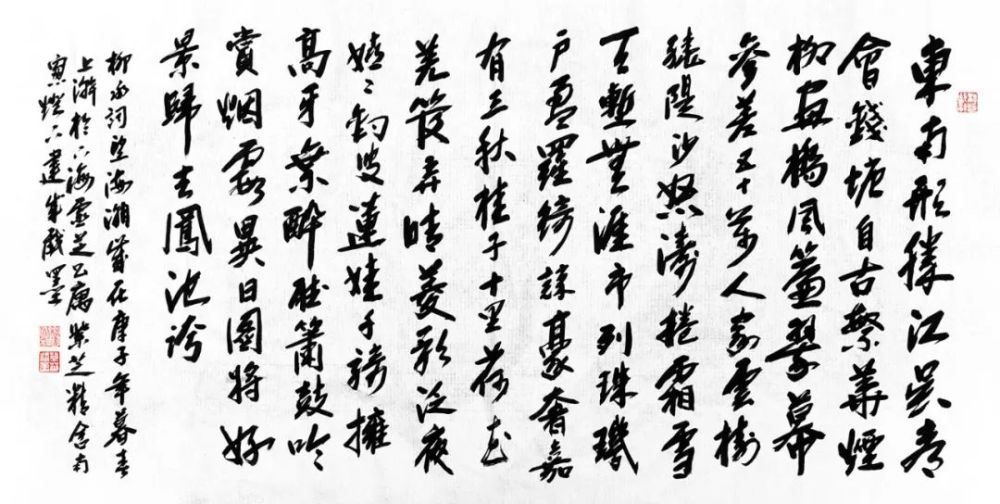 東南形勝江吳都
會錢塘自古繁華煙
柳畫橋風簾翠幕
參差又十萬人家雲樹
繞隄沙怒濤捲霜雪
天塹無涯市列珠璣
戶盈羅綺競豪奢嘉
有三秋桂子十里荷花
羌管弄晴菱歌泛夜
嬉〻釣叟蓮娃千騎擁
高牙乘醉聽簫鼓吟
賞烟霞異日圖將好
景歸去鳳池誇
柳永詞望海潮歲在庚子年暮春
上澣於上海靈芝廬紫芝精舍南
燈下建成戲墨